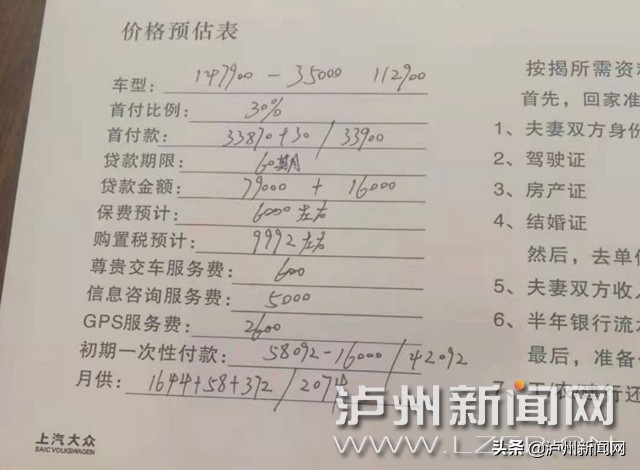 价格预估表
车型: 147900 - 35000 112900
首付比例: 30%
首付款: 33870+30 / 33900
贷款期限: 60期
贷款金额: 79000 + 16000
保费预计: 6000左右
购置税预计: 9992左右
尊贵交车服务费: 600
信息咨询服务费: 5000
GPS服务费: 2600
初期一次性付款: 58092-16000 / 42092
月供: 1644+58+372 / 2074
上汽大众
SAIC VOLKSWAGEN
按揭所需资料
首先，回家准
1、夫妻双方身份
2、驾驶证
3、房产证
4、结婚证
然后，去单位
5、夫妻双方收入
6、半年银行流水
最后，准备一
7、工农
行还
泸州新闻网
头条 @泸州新闻网